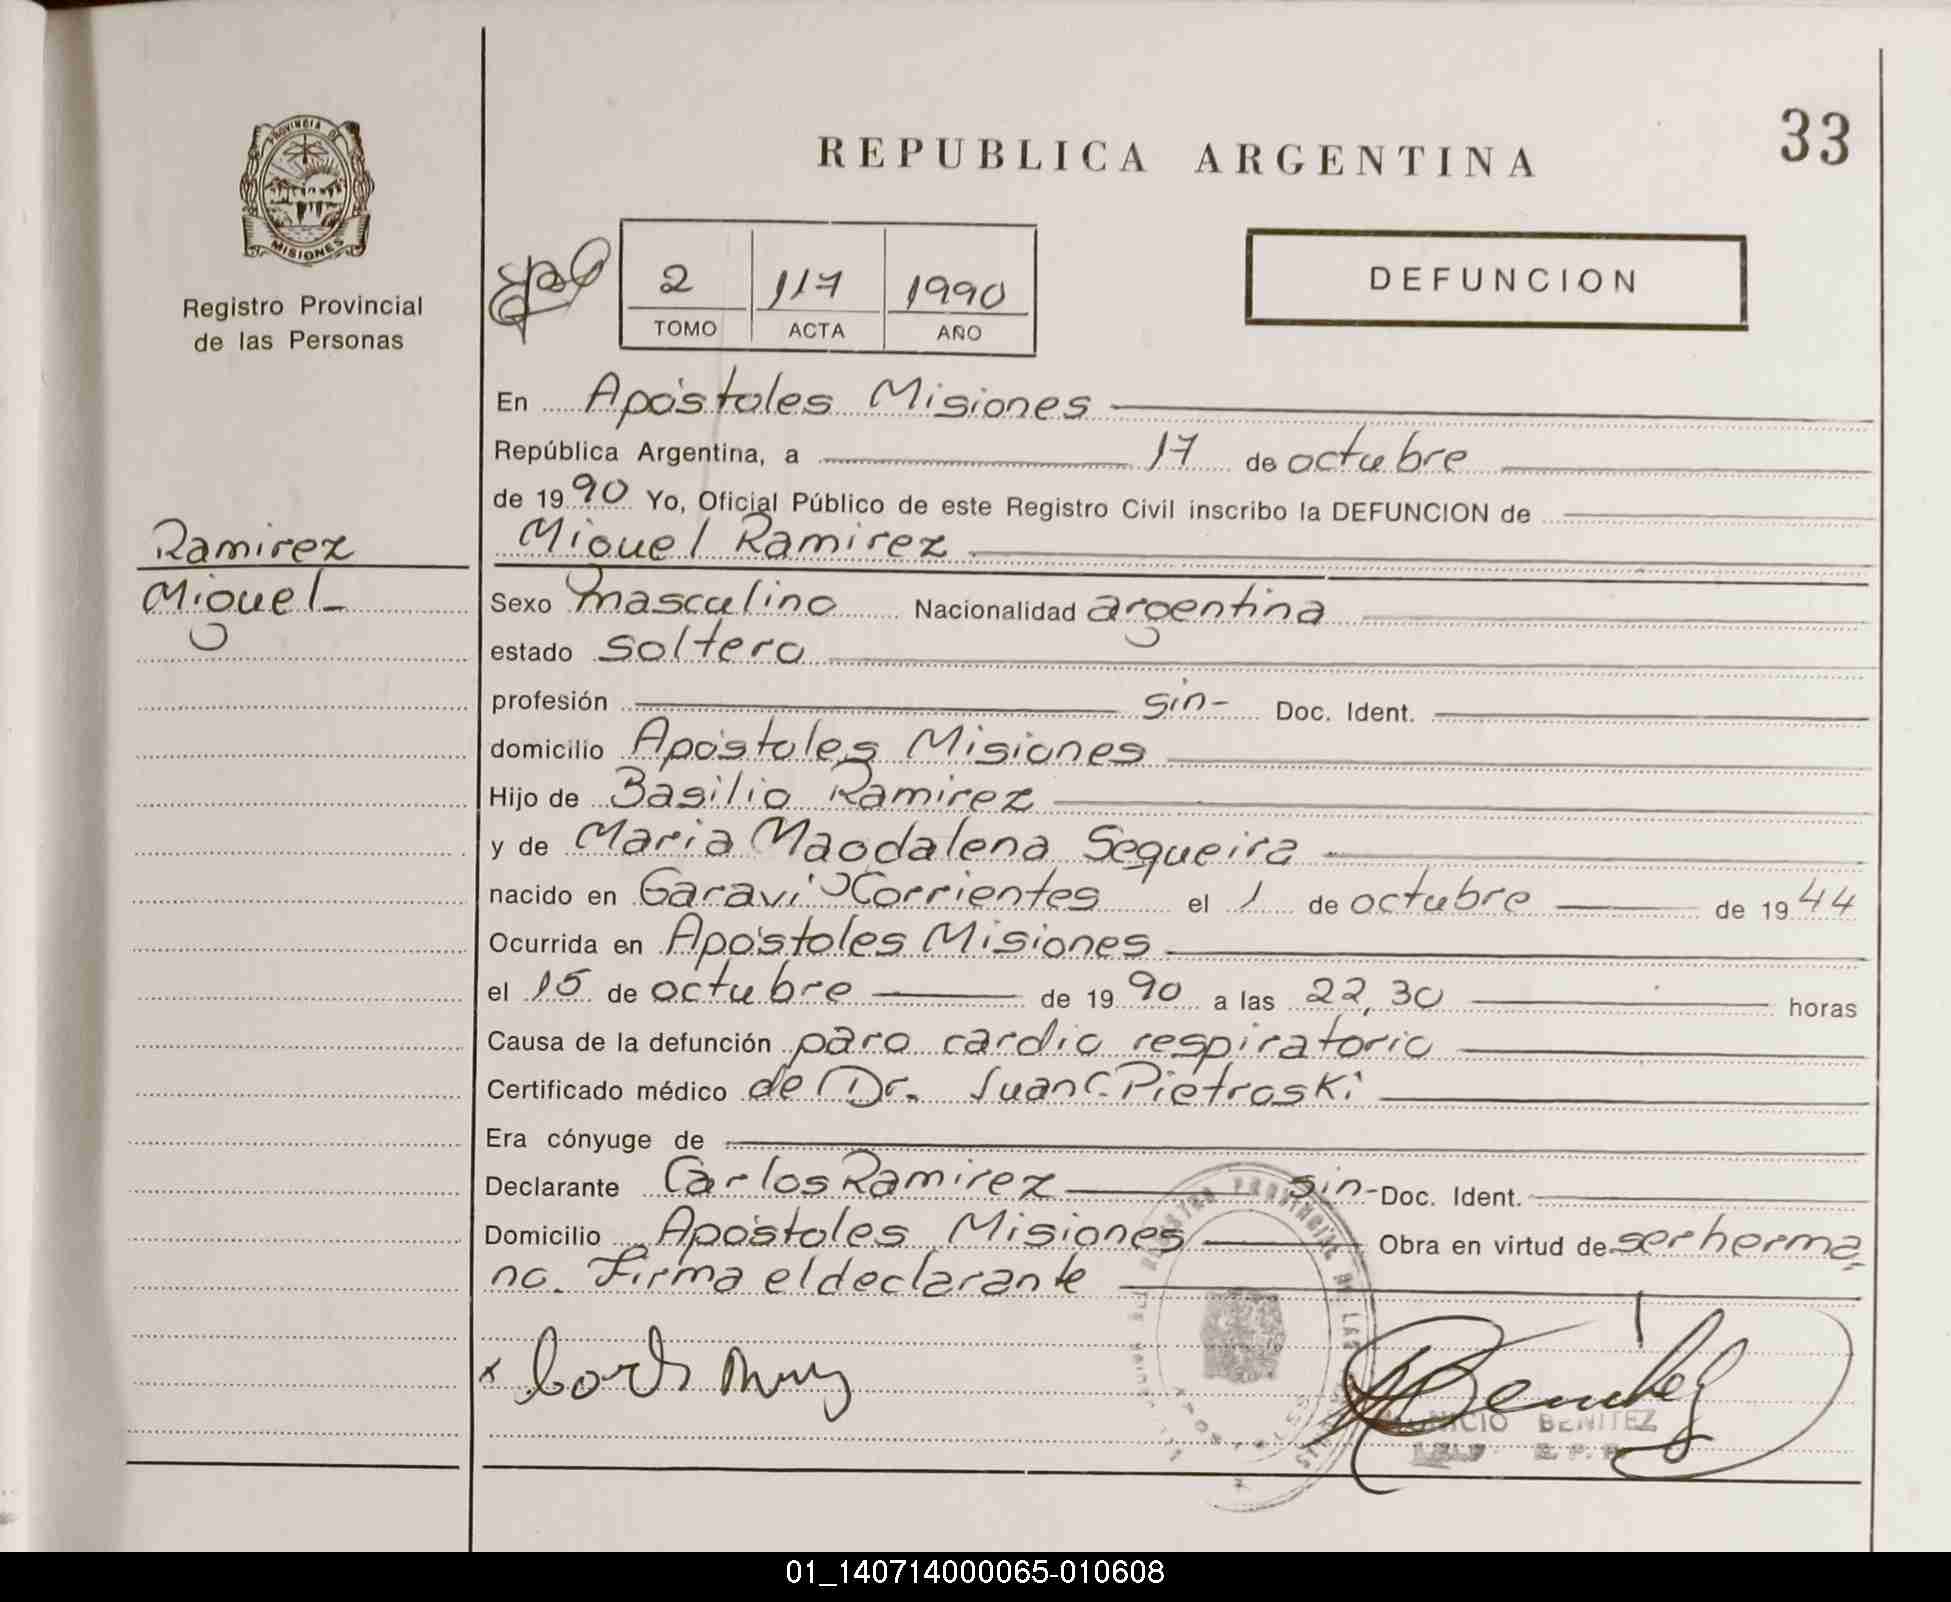 33
REPUBLICA ARGENTINA
PROVINCIA DE
MISIONES
Registro Provincial
de las Personas
DEFUNCION
2 117 1990
TOMO ACTA AÑO
En Apóstoles Misiones
República Argentina, a 17 de octubre
de 1990 Yo, Oficial Público de este Registro Civil inscribo la DEFUNCION de
Ramirez
Miguel
Miguel Ramirez
Sexo masculino Nacionalidad argentina
estado soltero
profesión sin- Doc. Ident.
domicilio Apóstoles Misiones
Hijo de Basilio Ramirez
y de Maria Magdalena Sequeira
nacido en Garavi Corrientes el 1 de octubre de 1944
Ocurrida en Apóstoles Misiones
el 15 de octubre de 1990 a las 22,30 horas
Causa de la defunción paro cardio respiratorio
Certificado médico de Dr. Juan C. Pietroski
Era cónyuge de
Declarante Carlos Ramirez sin- Doc. Ident.
Domicilio Apóstoles Misiones Obra en virtud de ser herma
no. Firma el declarante
x
Benitez
BENITEZ
01_140714000065-010608